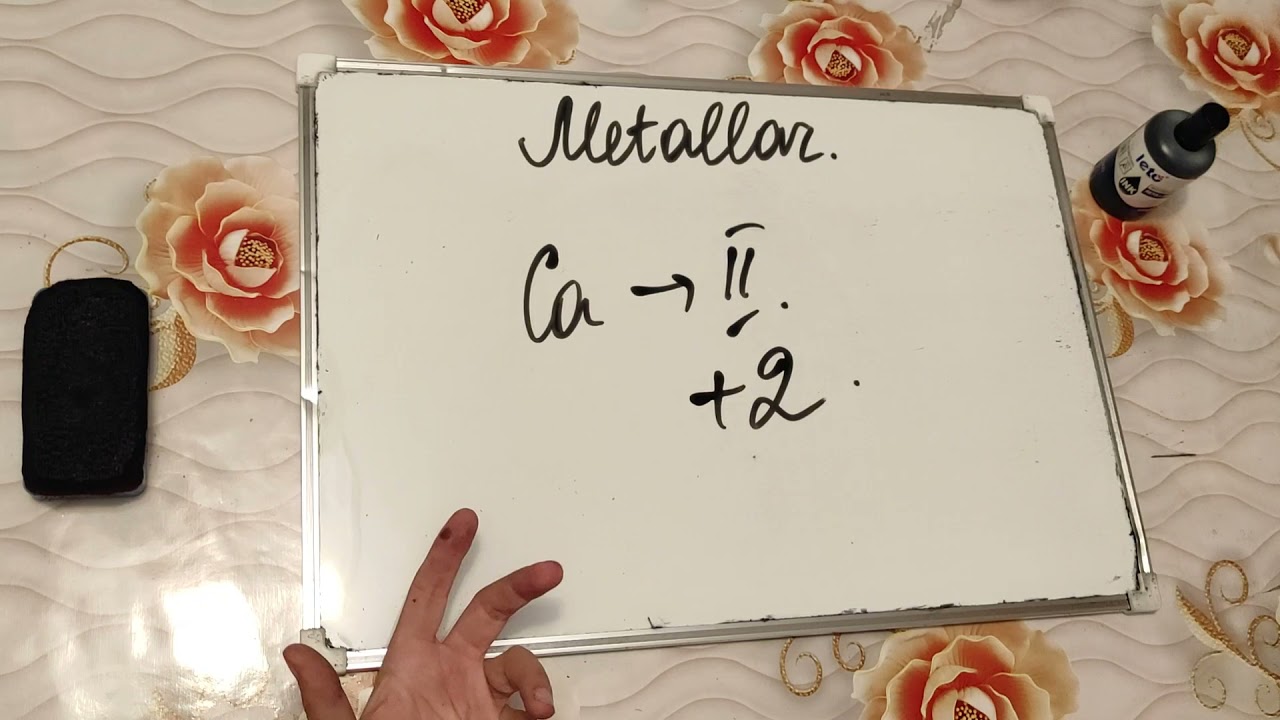 Metallar.
Ca → II.
+2.
leto
INK